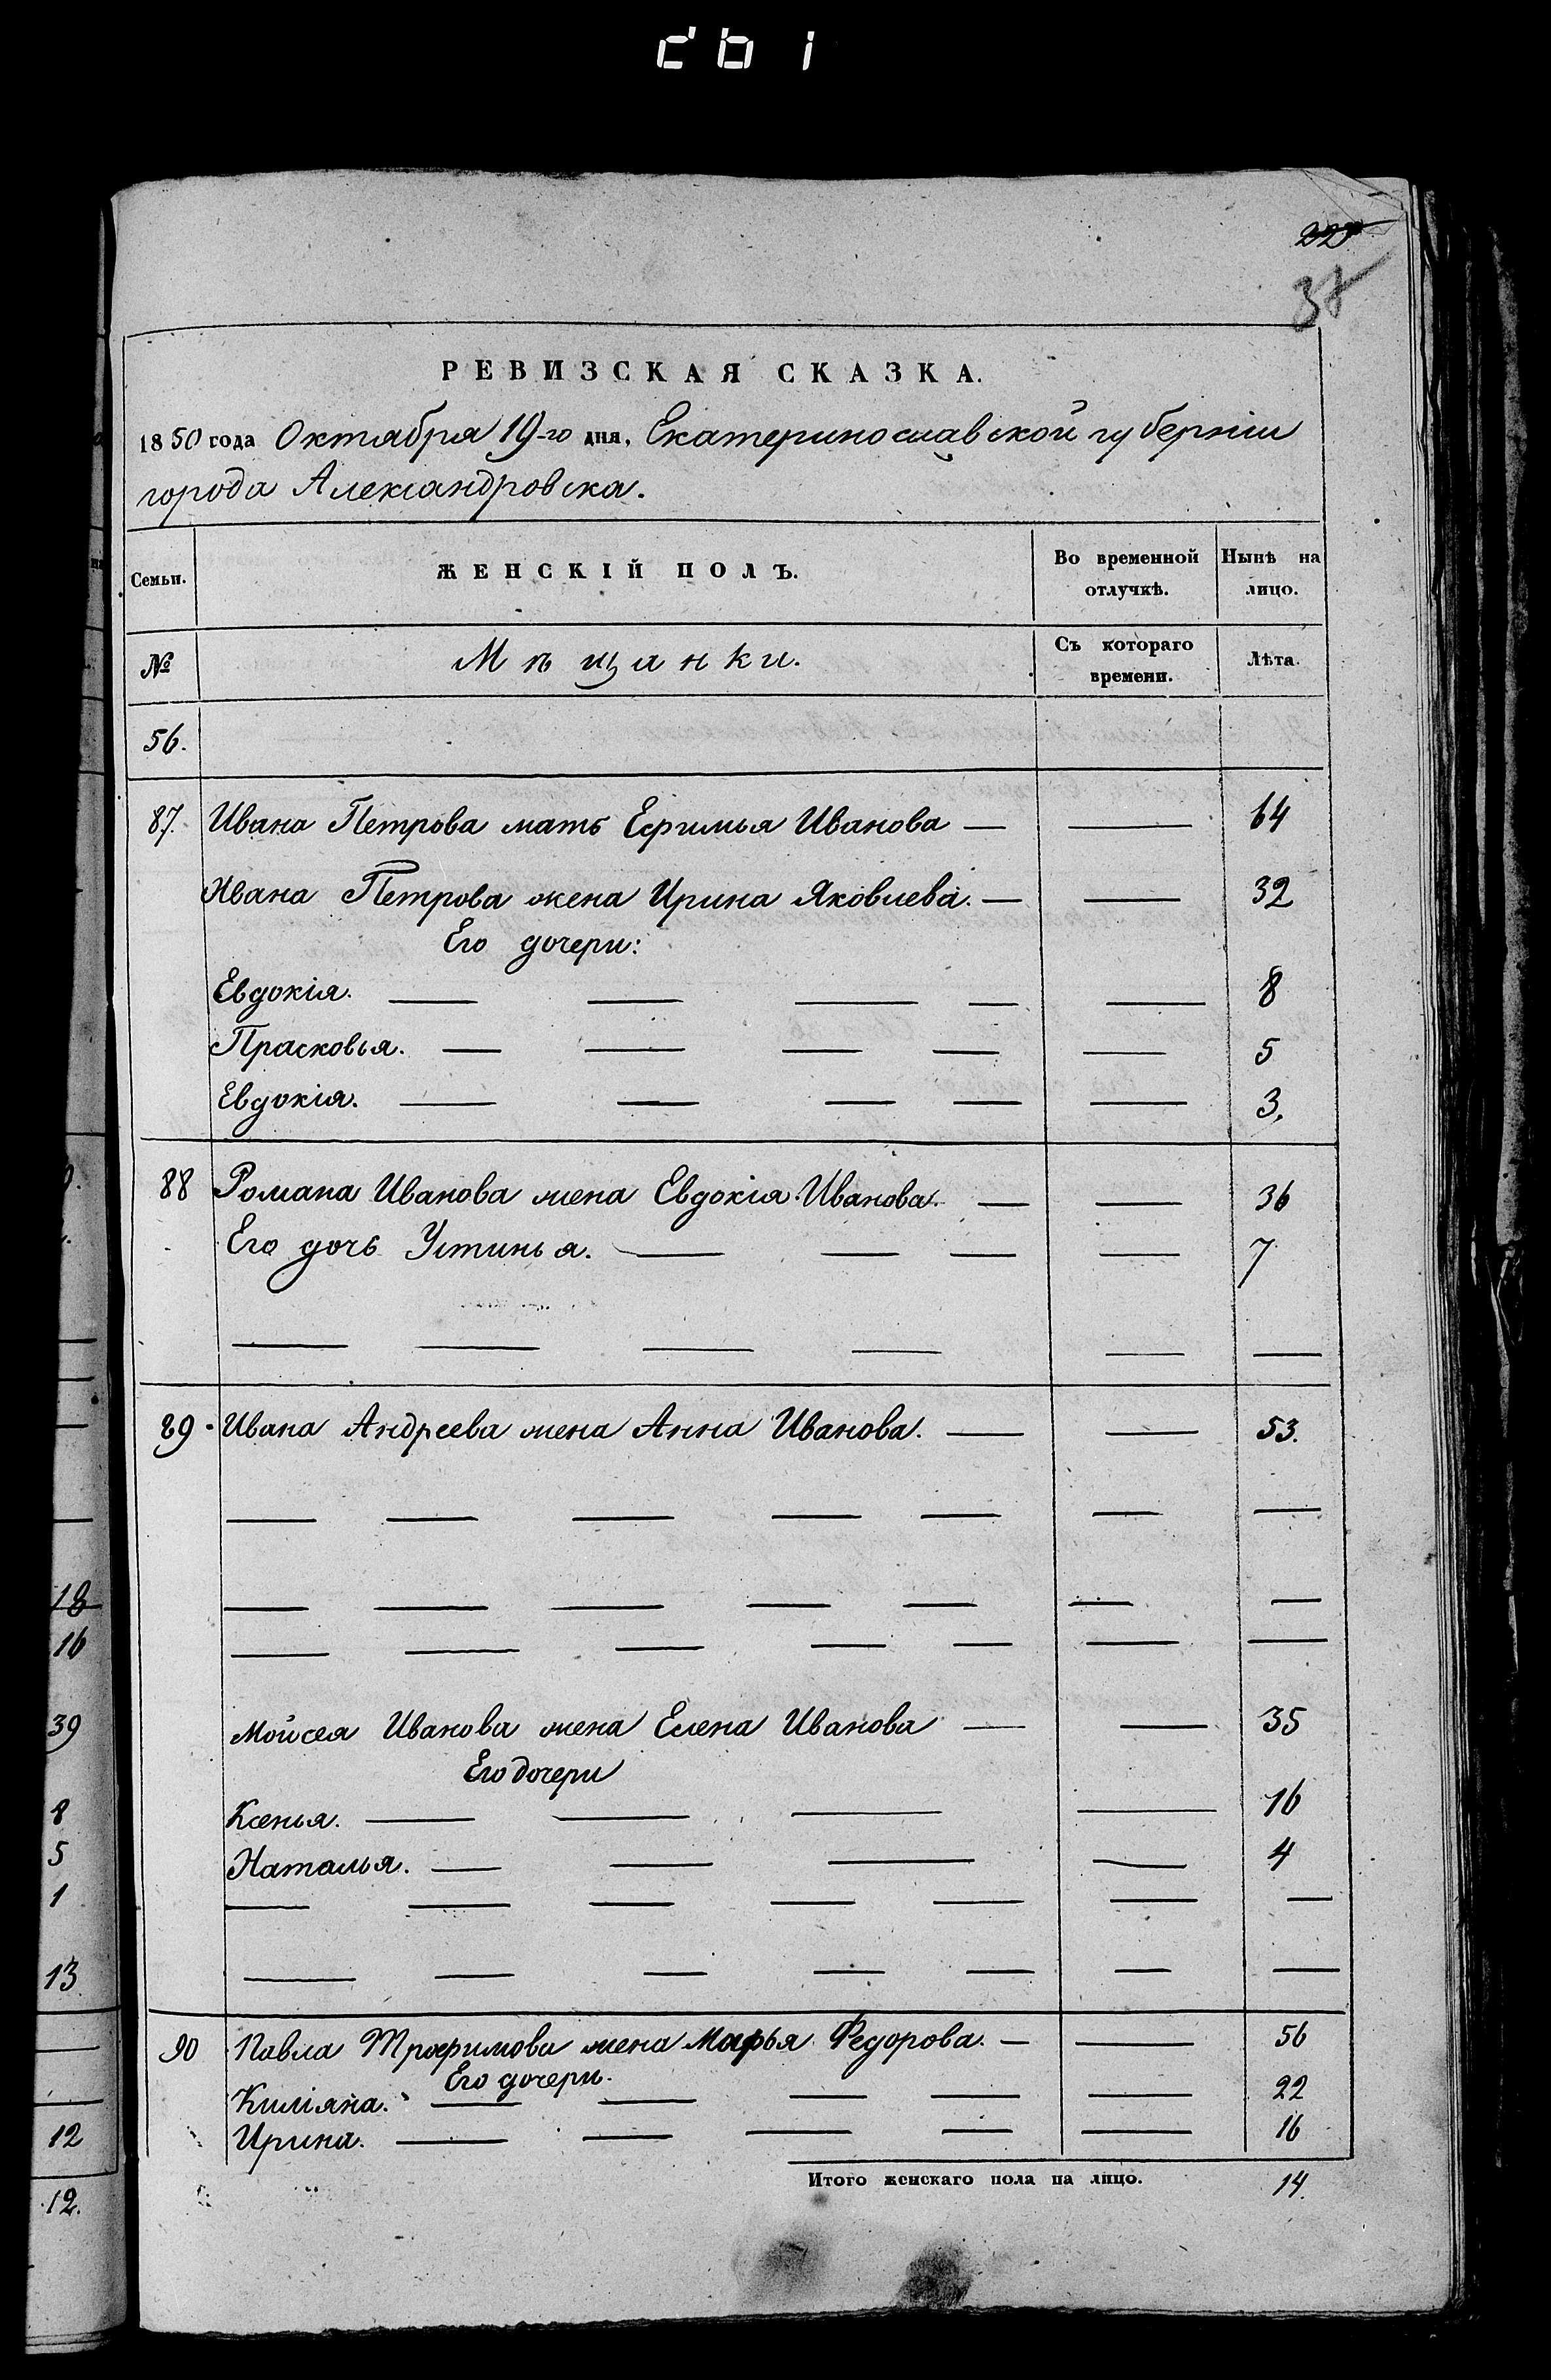 221
38
РЕВИЗСКАЯ СКАЗКА.
1850 года Октября 19-го дня, Екатеринославской губерніи
города Александровска.
Семьи. ЖЕНСКІЙ ПОЛЪ. Во временной отлучкѣ. Нынѣ на лицо.
№ Мѣщанки. Съ котораго времени. Лѣта.
56.
87. Ивана Петрова мать Ефимья Иванова — — 64
Ивана Петрова жена Ирина Яковлева. — — 32
Его дочери:
Евдокія. — — — — — 8
Прасковья. — — — — — 5
Евдокія. — — — — — 3.
88 Романа Иванова жена Евдокія Иванова. — — 36
Его дочь Устинья. — — — — 7
— — — — — —
89. Ивана Андреева жена Анна Иванова. — — 53.
— — — — — — —
— — — — — — —
— — — — — — —
Мойсея Иванова жена Елена Иванова — — 35
Его дочери
Ксенья. — — — — 16
Наталья. — — — — 4
— — — — — — —
— — — — — — —
90 Павла Трофимова жена Марья Федорова. — — 56
Его дочери.
Киліяна. — — — — — 22
Ирина. — — — — — 16
Итого женскаго пола на лицо. 14.
18
16
39
8
5
1
13
12
12.